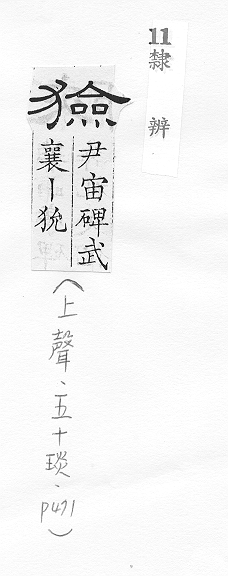 11隸辨
獫
尹宙碑武
襄丨狁
(上聲、五十琰、p471)